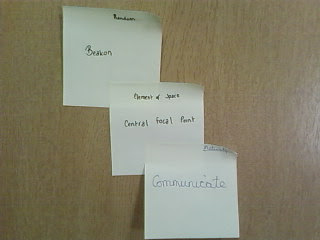 Random
Beakon
Element of Space
Central Focal Point
Communicate